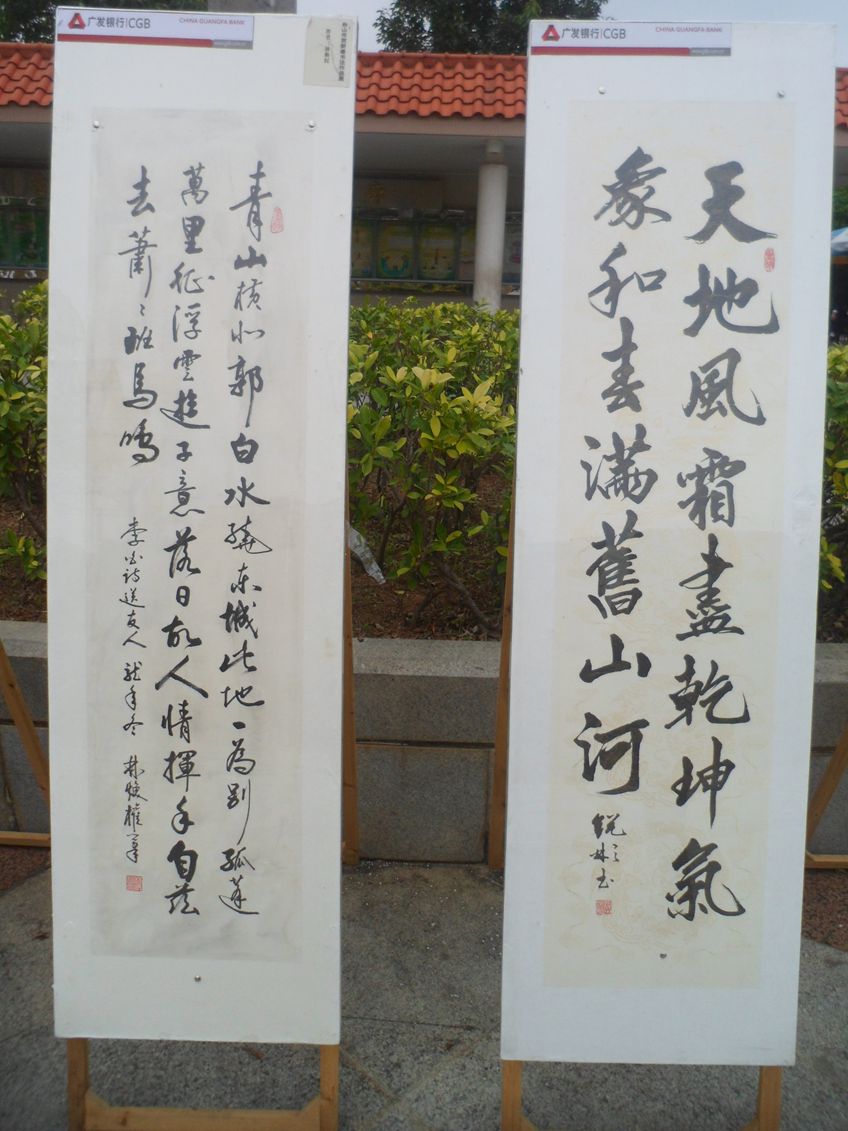 广发银行|CGB
CHINA GUANGFA BANK
青山橫北郭白水繞东城此地一為别孤蓬
萬里征浮雲遊子意落日故人情揮手自茲
去蕭〻班馬鳴
李白詩送友人 龙年冬 林焕權筆
广发银行|CGB
CHINA GUANGFA BANK
天地風霜盡乾坤氣
象和春滿舊山河